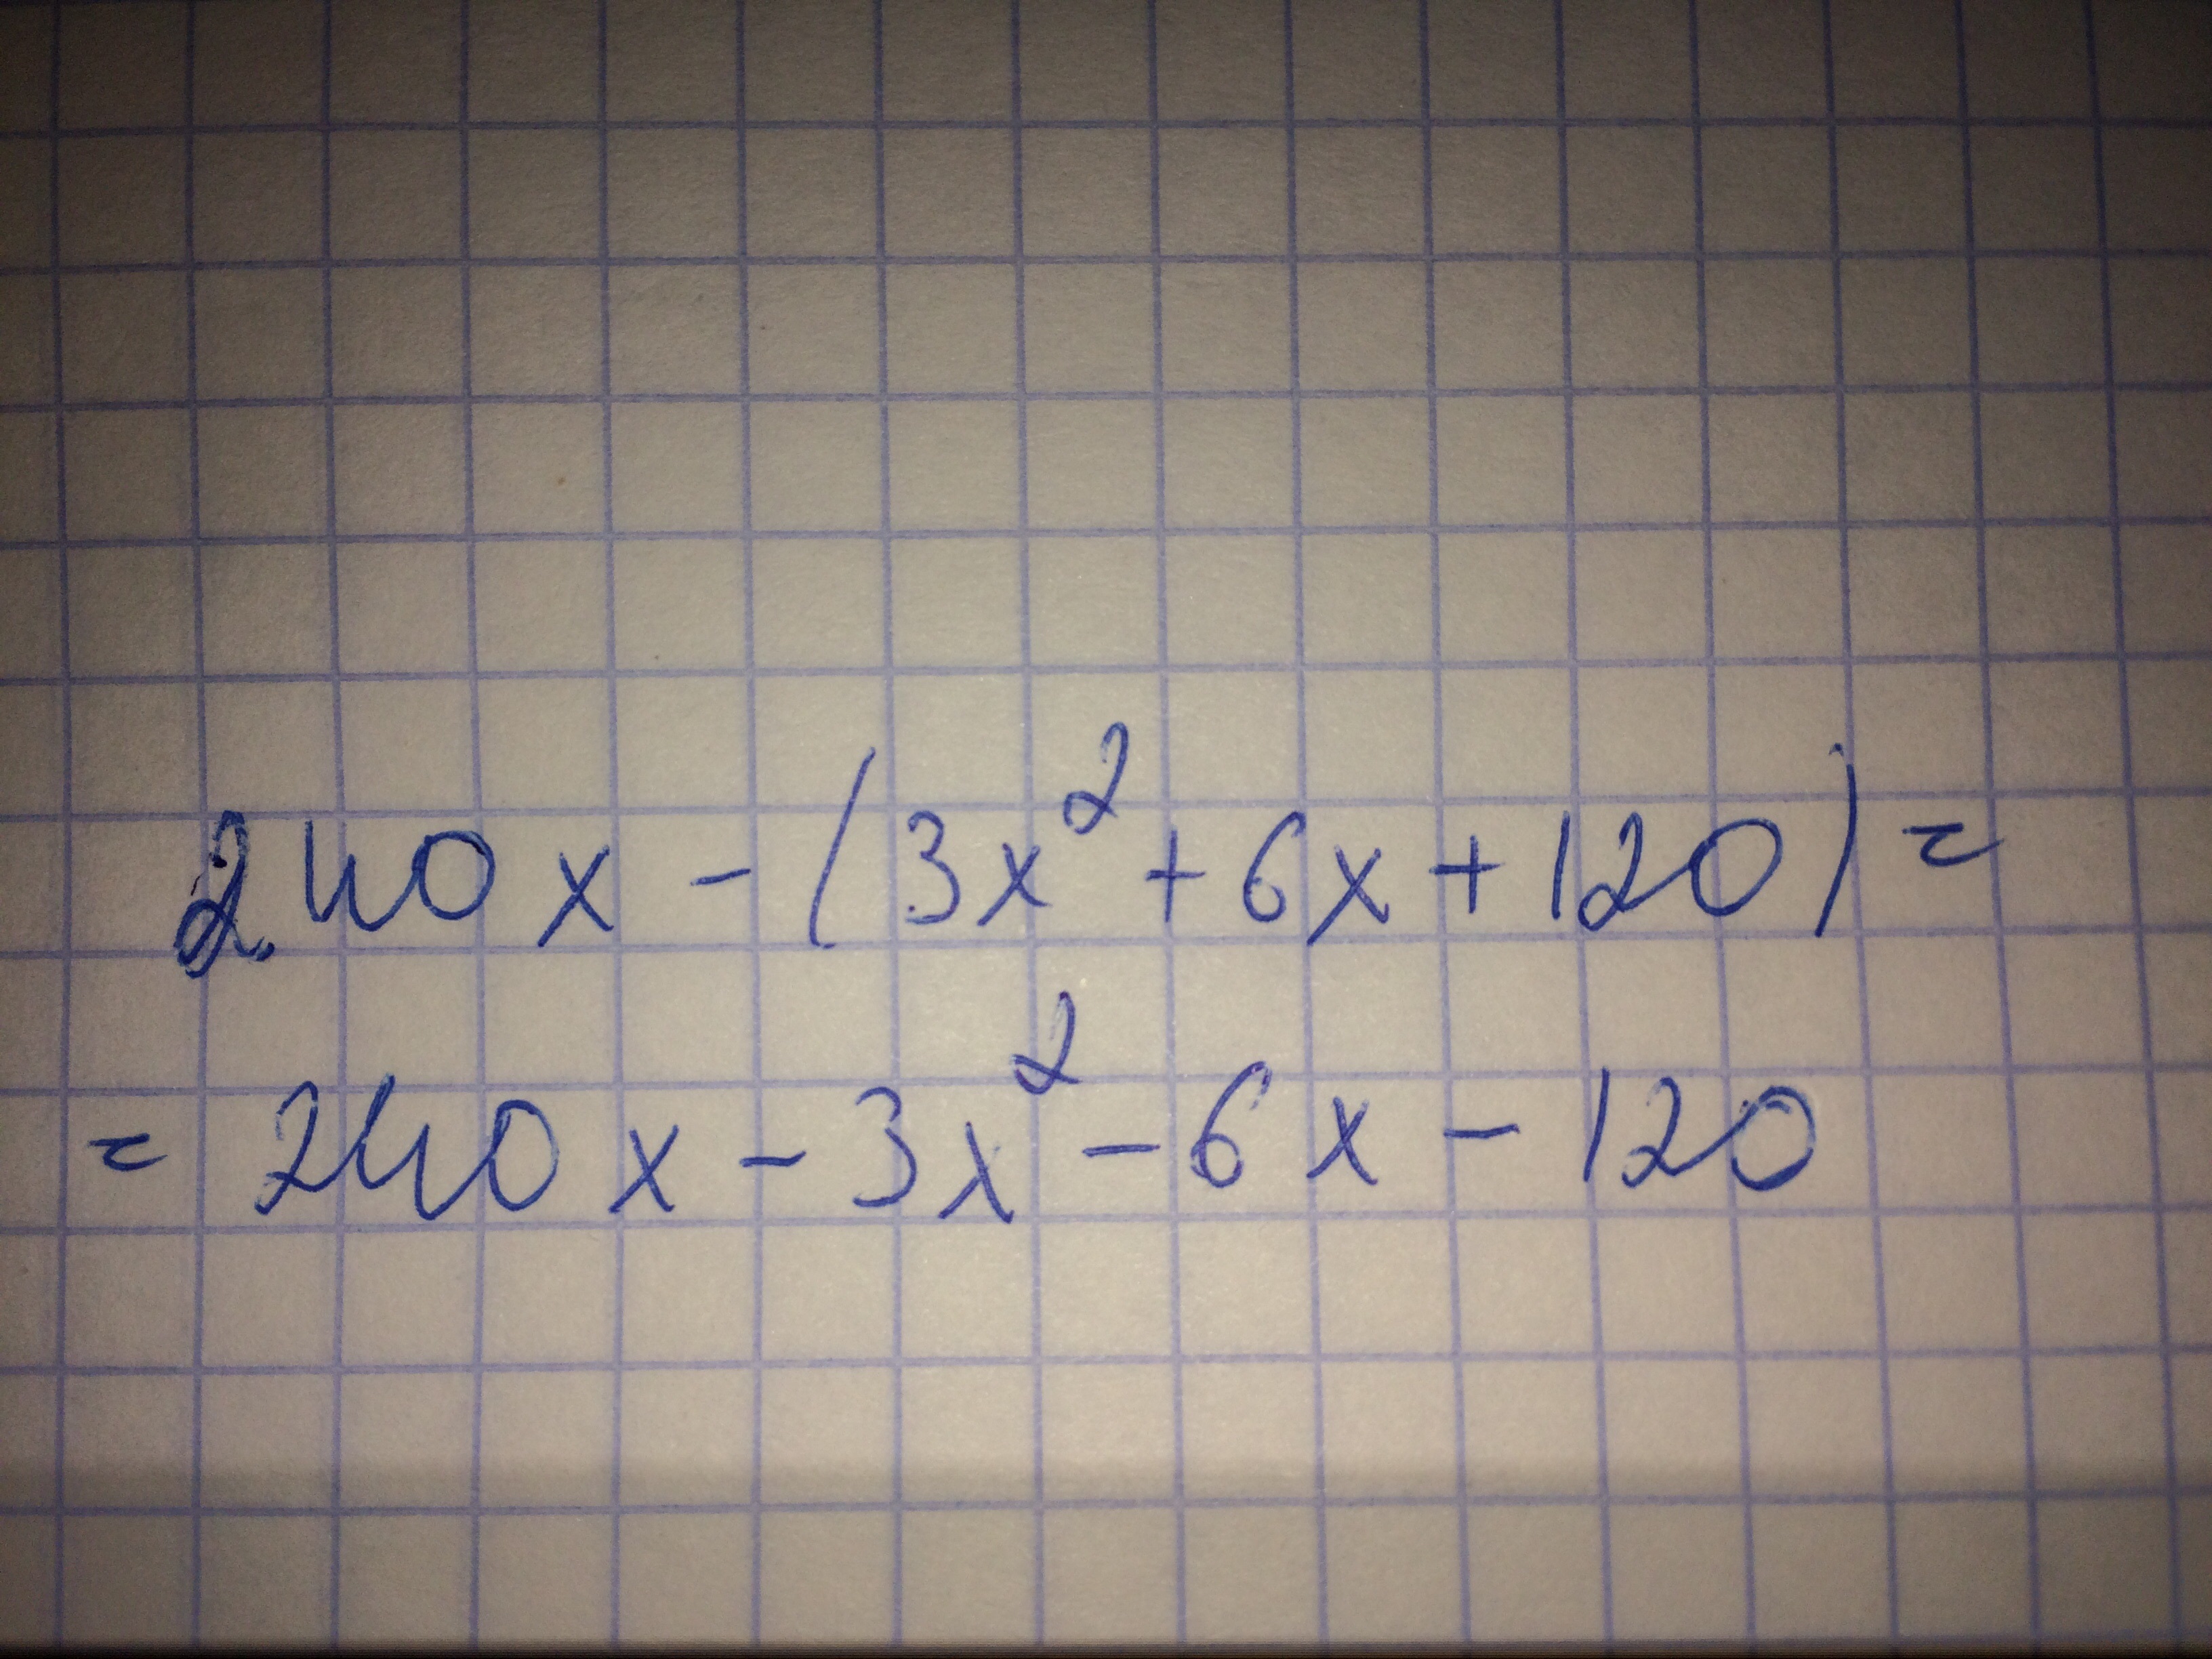 240x - (3x² + 6x + 120) =
= 240x - 3x² - 6x - 120